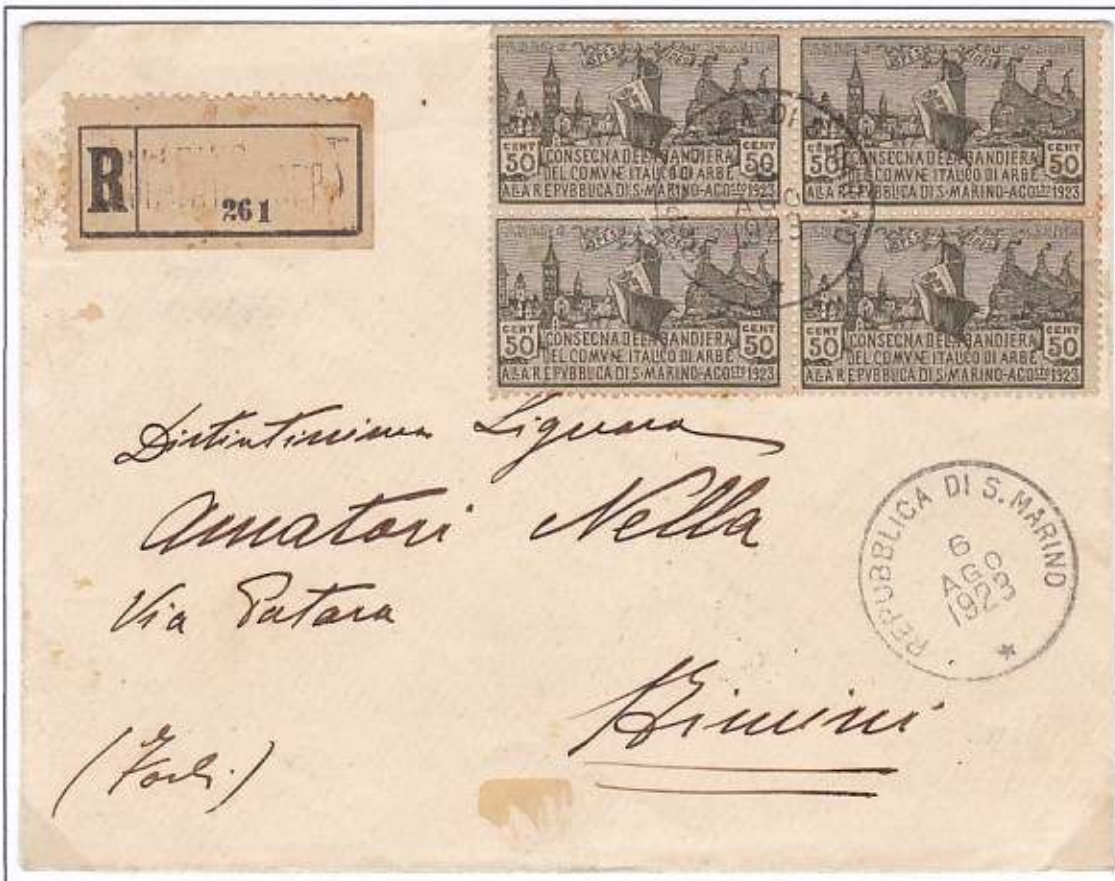 R
261
SPES FIDES
CENT 50 CONSEGNA DELLA BANDIERA CENT 50
DEL COMVNE ITALICO DI ARBE
ALLA REPVBBLICA DI S·MARINO-AGOSTO 1923
SPES FIDES
CENT 50 CONSEGNA DELLA BANDIERA CENT 50
DEL COMVNE ITALICO DI ARBE
ALLA REPVBBLICA DI S·MARINO-AGOSTO 1923
SPES FIDES
CENT 50 CONSEGNA DELLA BANDIERA CENT 50
DEL COMVNE ITALICO DI ARBE
ALLA REPVBBLICA DI S·MARINO-AGOSTO 1923
SPES FIDES
CENT 50 CONSEGNA DELLA BANDIERA CENT 50
DEL COMVNE ITALICO DI ARBE
ALLA REPVBBLICA DI S·MARINO-AGOSTO 1923
Distintissima Signora
Amatori Nella
Via Patara
Rimini
(Forlì)
REPUBBLICA DI S. MARINO
6
AGO
1923